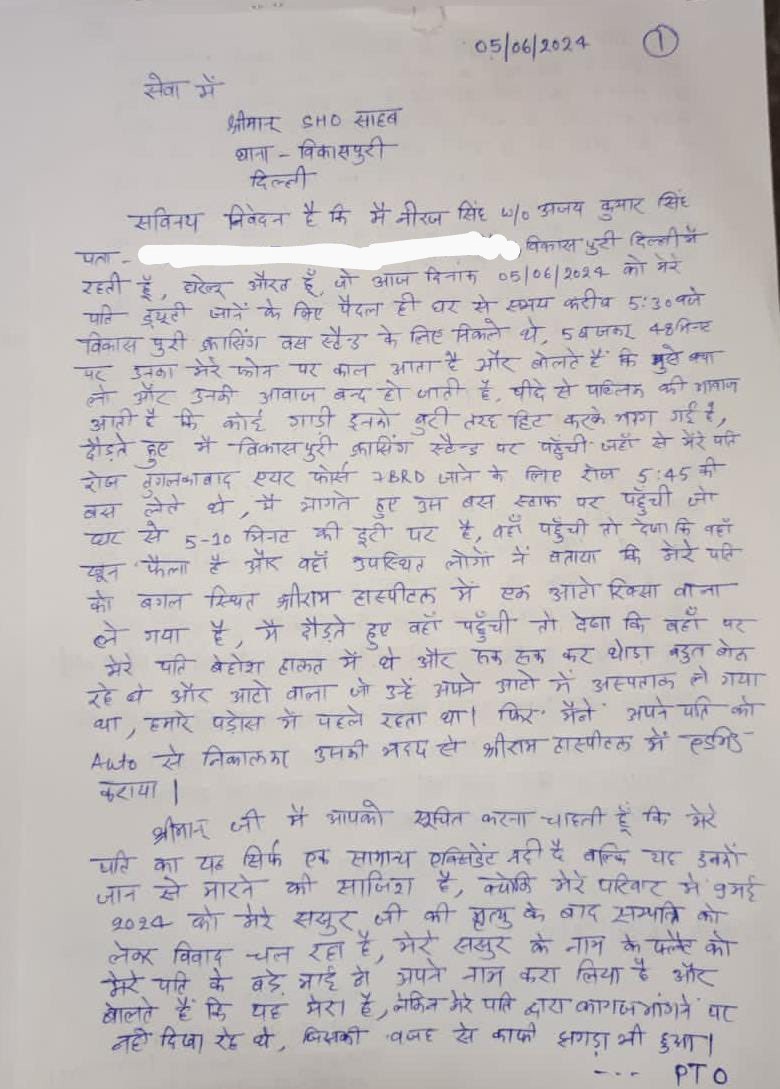 05/06/2024 ①
सेवा में
श्रीमान् SHO साहब
थाना - विकासपुरी
दिल्ली
सविनय निवेदन है कि मै नीरज सिंह w/o अजय कुमार सिंह
पता - विकासपुरी दिल्ली में
रहती हूँ, घरेलू औरत हूँ, जो आज दिनांक 05/06/2024 को मेरे
पति ड्यूटी जाने के लिए पैदल ही घर से समय करीब 5:30 बजे
विकास पुरी क्रासिंग बस स्टैंड के लिए निकले थे, 5 बजकर 48 मिनट
पर उनका मेरे फोन पर काल आता है और बोलते हैं कि मुझे बचा
लो और उनकी आवाज बन्द हो जाती है, पीछे से पब्लिक की आवाज
आती है कि कोई गाडी इनको बुरी तरह हिट करके भाग गई है,
दौड़ते हुए मै विकासपुरी क्रासिंग स्टैन्ड पर पहुँची जहाँ से मेरे पति
रोज तुगलकाबाद एयर फोर्स 7BRD जाने के लिए रोज 5:45 की
बस लेते थे, मै भागते हुए उस बस स्टाफ पर पहुँची जो
घर से 5-10 मिनट की दूरी पर है, वहाँ पहुँची तो देखा कि वहाँ
खून फैला है और वहाँ उपस्थित लोगों नें बताया कि मेरे पति
को बगल स्थित श्रीराम हास्पीटल में एक आटो रिक्सा वाला
ले गया है, मै दौड़ते हुए वहाँ पहुँची तो देखा कि वहाँ पर
मेरे पति बेहोश हालत में थे और रूक रूक कर थोड़ा बहुत बोल
रहे थे और आटो वाला जो उन्हें अपने आटो में अस्पताल ले गया
था, हमारे पड़ोस में पहले रहता था। फिर मैनें अपने पति को
Auto से निकालकर उसकी मदद से श्रीराम हास्पीटल में एडमिड
कराया।
श्रीमान् जी मै आपको सूचित करना चाहती हूँ कि मेरे
पति का यह सिर्फ एक सामान्य एक्सिडेंट नही है बल्कि यह इनको
जान से मारने की साजिश है, क्योकि मेरे परिवार में 9 मई
2024 को मेरे ससुर जी की मृत्यु के बाद सम्पत्ति को
लेकर विवाद चल रहा है, मेरे ससुर के नाम के फ्लैट को
मेरे पति के बड़े भाई ने अपने नाम करा लिया है और
बोलते हैं कि यह मेरा है, लेकिन मेरे पति द्वारा कागज मांगने पर
नही दिखा रहे थे, जिसकी वजह से काफी झगड़ा भी हुआ।
--- PTO